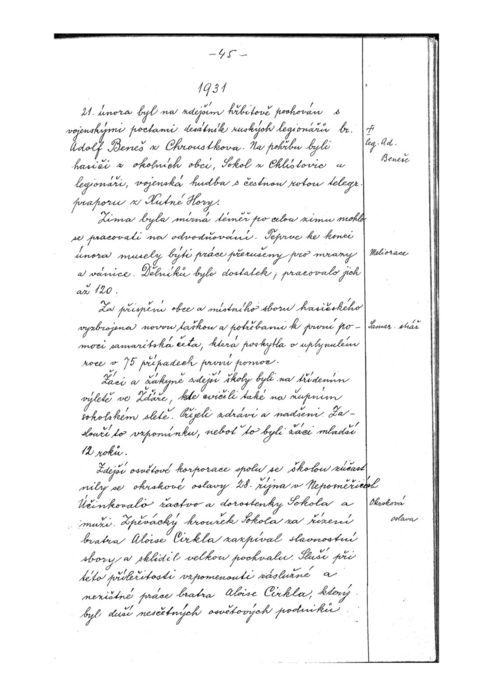 -45-
1931
21. února byl na zdejším hřbitově pochován s
vojenskými poctami desátník ruských legionářů br.
Adolf Beneš z Chroustkova. Na pohřbu byli
hasiči z okolních obcí, Sokol z Chlístovic a
legionáři, vojenská hudba s čestnou rotou telegr.
praporu z Kutné Hory.
† leg. Ad. Beneše
Zima byla mírná téměř po celou zimu mohlo
se pracovati na odvodňování. Teprve ke konci
února musely býti práce přerušeny pro mrazy
a vánice. Dělníků bylo dostatek, pracovalo jich
až 120.
Meliorace
Za přispění obce a místního sboru hasičského
vyzbrojena novou taškou a potřebami k první po-
moci samaritská četa, která poskytla v uplynulém
roce v 75 případech první pomoc.
Samar. stráž
Žáci a žákyně zdejší školy byli na třídenním
výletě ve Žďáře, kde cvičili také na župním
sokolském sletě. Přijeli zdrávi a nadšeni. Za-
slouží to vzpomínku, neboť to byli žáci mladší
12 roků.
Zdejší osvětové korporace spolu se školou zúčast
nily se okrskové oslavy 28. října v Nepoměřicích
Účinkovalo žactvo a dorostenky Sokola a
muži. Zpěvácký kroužek Sokola za řízení
bratra Aloise Cirkla zazpíval slavnostní
sbory a sklidil velkou pochvalu. Sluší při
této příležitosti vzpomenouti záslužné a
nezištné práce bratra Aloise Cirkla, který
byl duší nesčetných osvětových podniků
Okrsková
oslava